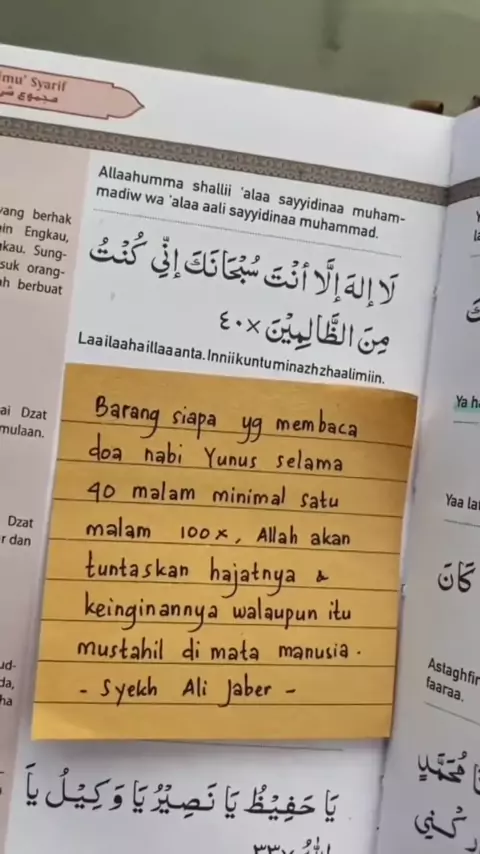 mu' Syarif
yang berhak
in Engkau,
kau. Sung-
suk orang-
ah berbuat
ai Dzat
mulaan.
Dzat
r dan
ud-
da,
ha
Allaahumma shallii 'alaa sayyidinaa muham-
madiw wa 'alaa aali sayyidinaa muhammad.
لَا إِلٰهَ إِلَّا أَنْتَ سُبْحَانَكَ إِنِّي كُنْتُ
مِنَ الظَّالِمِيْنَ ×٤٠
Laa ilaaha illaa anta. Innii kuntu minazh zhaalimiin.
Barang siapa yg membaca
doa nabi Yunus selama
40 malam minimal satu
malam 100x, Allah akan
tuntaskan hajatnya &
keinginannya walaupun itu
mustahil di mata manusia.
- Syekh Ali Jaber -
يَا حَفِيْظُ يَا نَصِيْرُ يَا وَكِيْلُ يَا
اَللهُ ×٣٣
Ya ha
Yaa la
كَانَ
Astaghfir
faaraa.
مُحَمَّدٍ